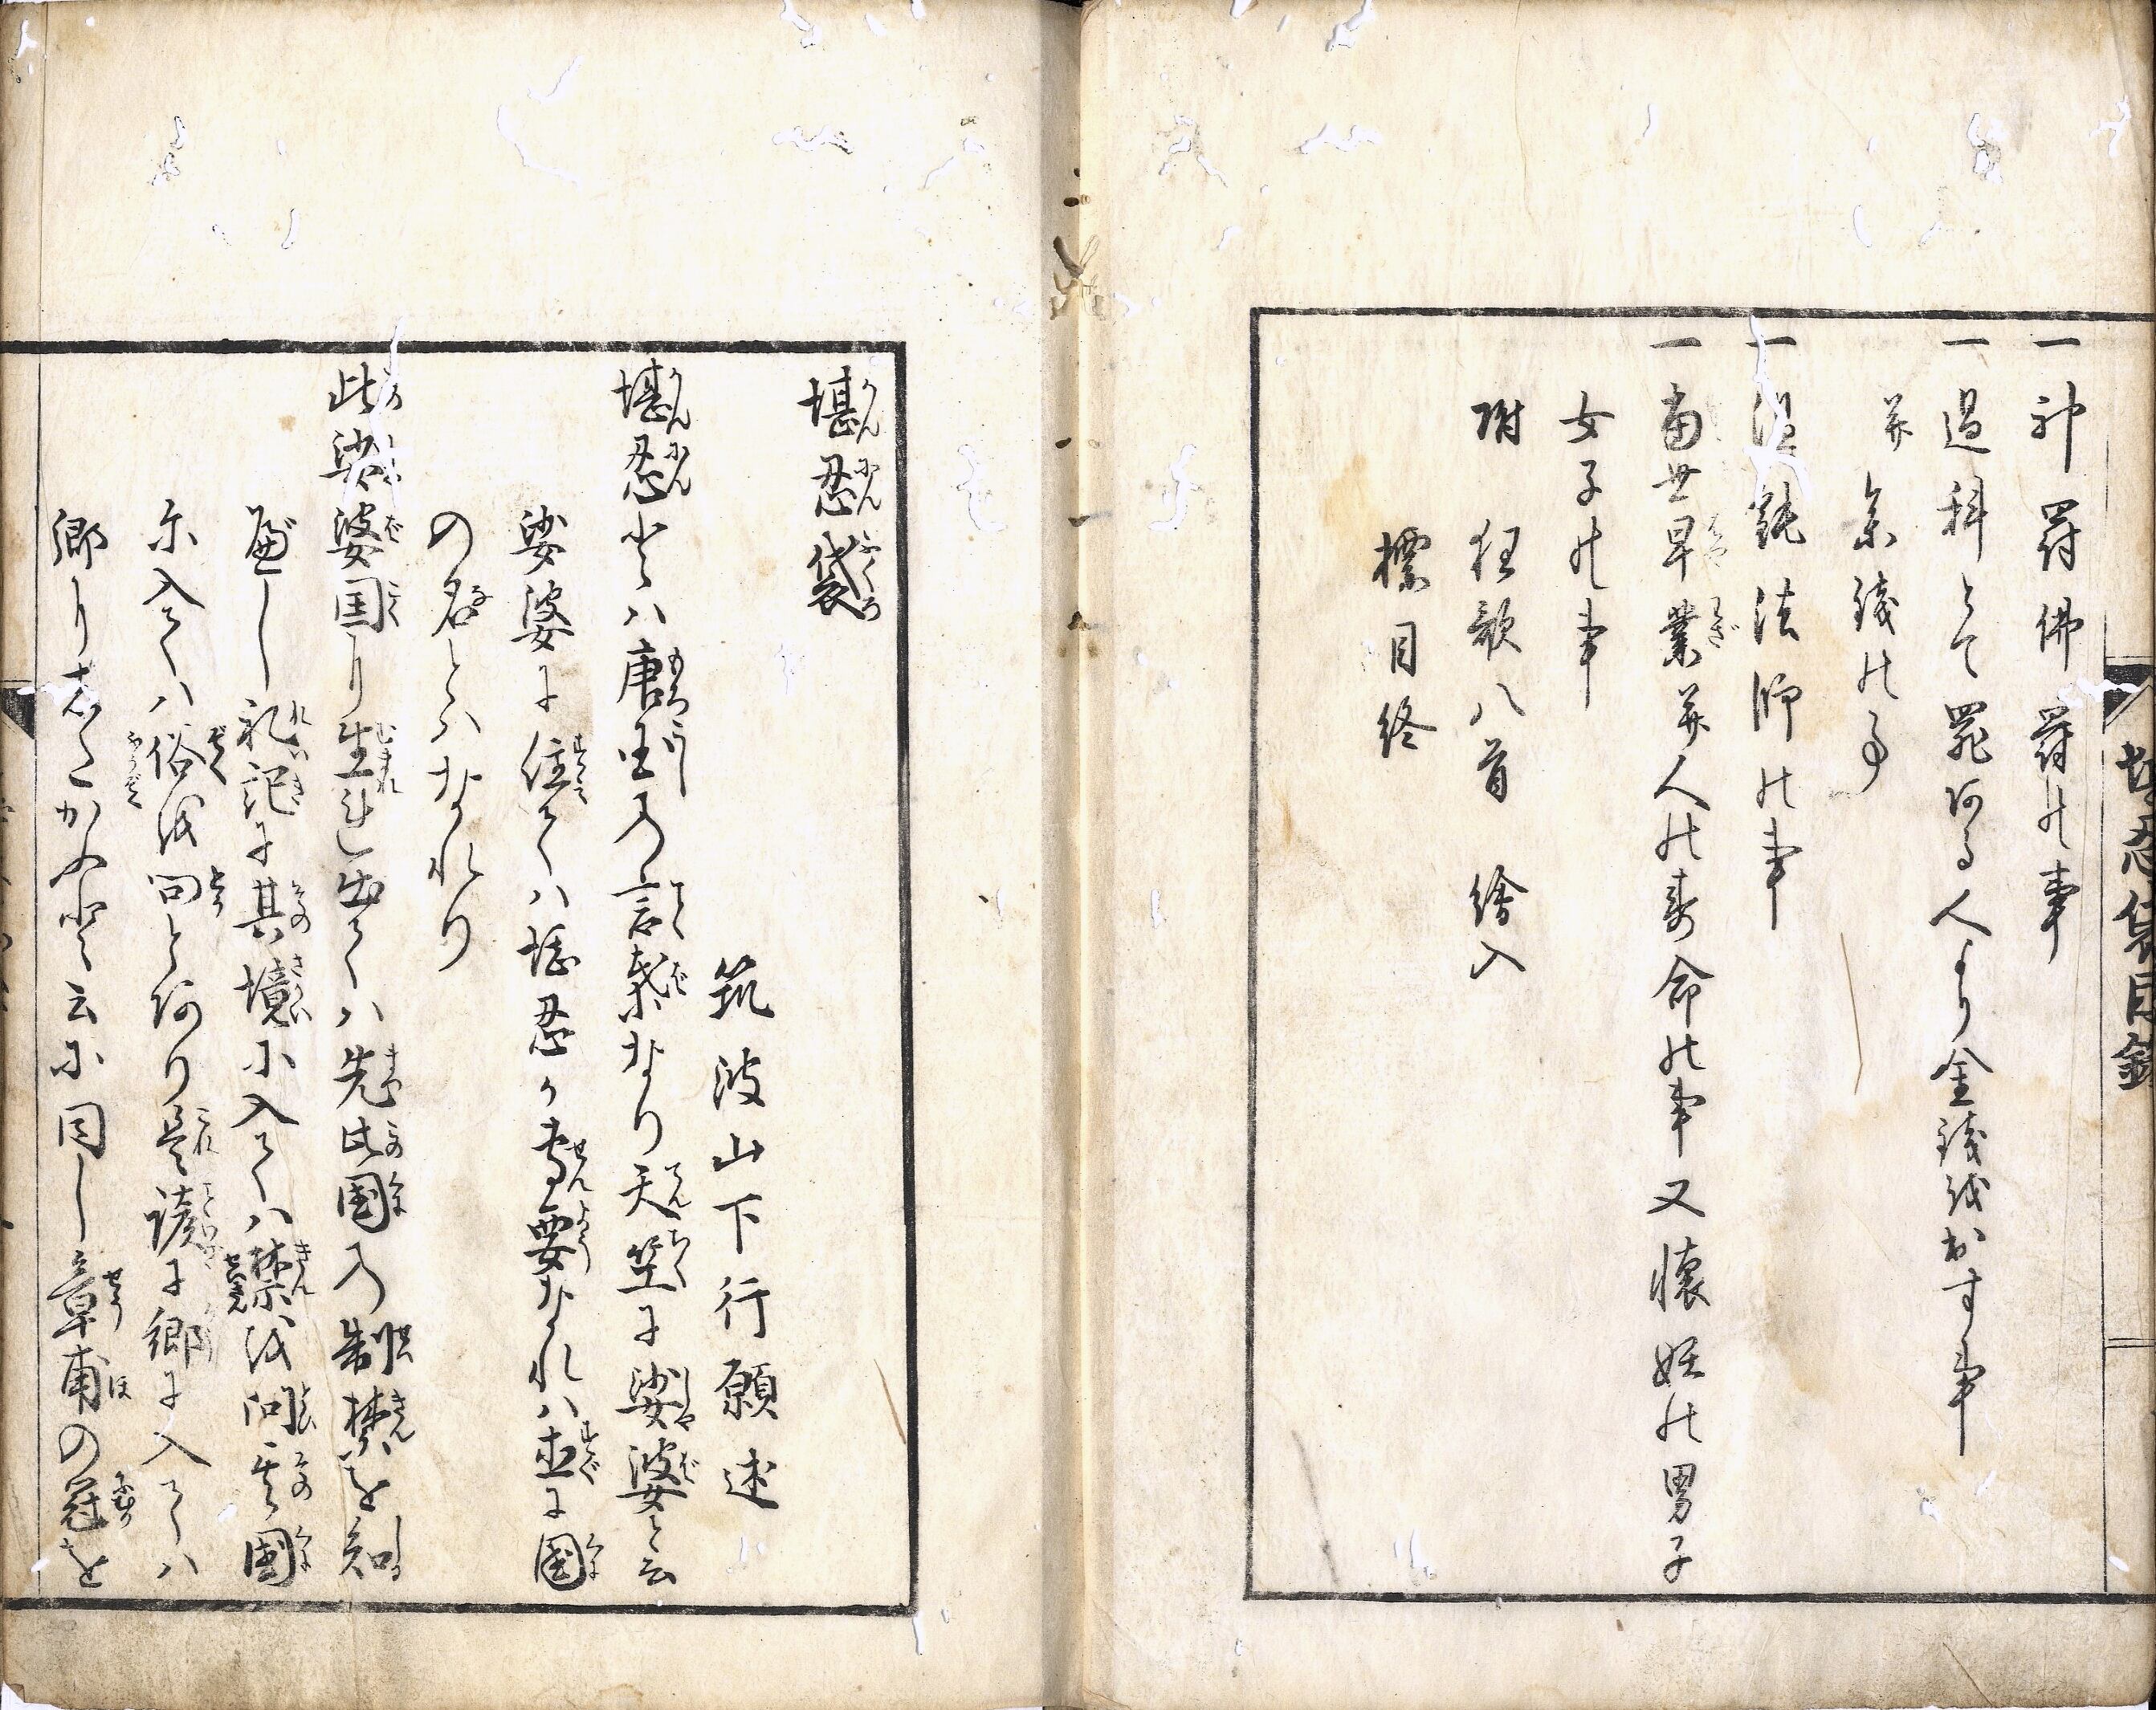 一神罸佛罸の事
一過料とて罪ある人より金銭を出す事
并余銭の事
一温飩法師の事
一当世早業并人の寿命の事又懐妊の男子
女子の事
附 狂歌八首 繪入
標目終
堪忍袋目録
堪忍袋
筑波山下行願述
堪忍とハ唐土の言葉なり天竺に娑婆と云
娑婆に住てハ堪忍か専要なれハ直に国
の名とハなれり
此娑婆国に生れ出てハ先此国の制禁を知
べし礼記に其境に入てハ禁を問其国
に入てハ俗を問とあり是諺に郷に入てハ
郷にしたかへと云に同し章甫の冠を